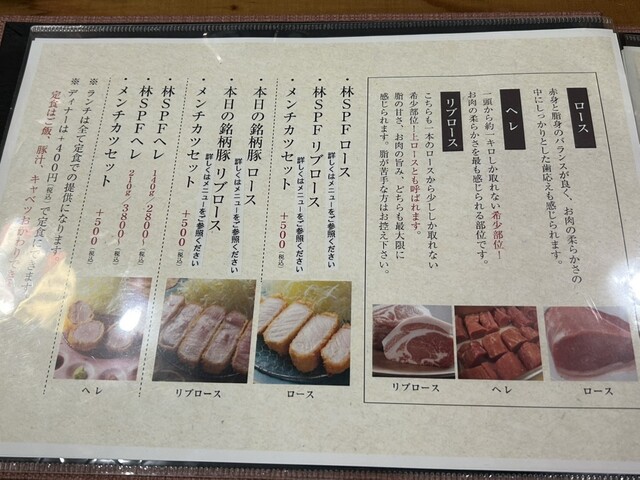 ロース
赤身と脂身のバランスが良く、お肉の柔らかさの
中にしっかりとした歯応えも感じられます。
ヘレ
一頭から約一キロしか取れない希少部位！
お肉の柔らかさを最も感じられる部位です。
リブロース
こちらも一本のロースから少ししか取れない
希少部位！上ロースとも呼ばれます。
脂の甘さ、お肉の旨み、どちらも最大限に
感じられます。脂が苦手な方はお控え下さい。
リブロース
ヘレ
ロース
・林SPFロース
・林SPFリブロース
詳しくはメニューをご参照ください
・メンチカツセット
＋500(税込)
・本日の銘柄豚 ロース
詳しくはメニューをご参照ください
・本日の銘柄豚 リブロース
詳しくはメニューをご参照ください
・メンチカツセット
＋500(税込)
・林SPFヘレ 140g 2800(税込)
210g 3800(税込)
・メンチカツセット
＋500(税込)
※ランチは全て定食での提供になります
※ディナーは＋400円(税込)で定食にできます。
定食はご飯、豚汁、キャベツおかわりできます
ヘレ
リブロース
ロース